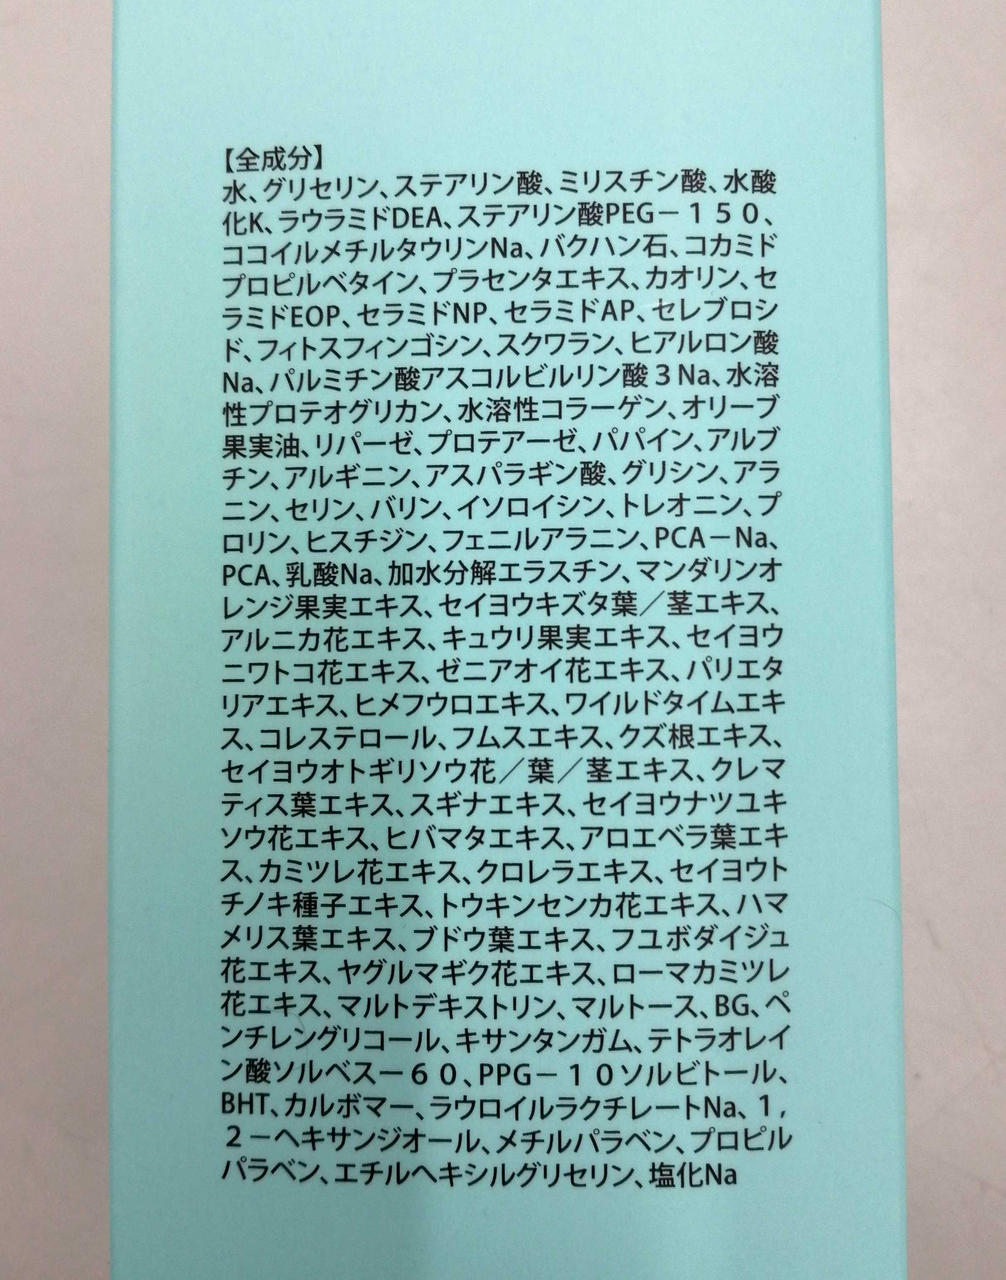 【全成分】
水、グリセリン、ステアリン酸、ミリスチン酸、水酸
化K、ラウラミドDEA、ステアリン酸PEG－１５０、
ココイルメチルタウリンNa、バクハン石、コカミド
プロピルベタイン、プラセンタエキス、カオリン、セ
ラミドEOP、セラミドNP、セラミドAP、セレブロシ
ド、フィトスフィンゴシン、スクワラン、ヒアルロン酸
Na、パルミチン酸アスコルビルリン酸３Na、水溶
性プロテオグリカン、水溶性コラーゲン、オリーブ
果実油、リパーゼ、プロテアーゼ、パパイン、アルブ
チン、アルギニン、アスパラギン酸、グリシン、アラ
ニン、セリン、バリン、イソロイシン、トレオニン、プ
ロリン、ヒスチジン、フェニルアラニン、PCA－Na、
PCA、乳酸Na、加水分解エラスチン、マンダリンオ
レンジ果実エキス、セイヨウキズタ葉／茎エキス、
アルニカ花エキス、キュウリ果実エキス、セイヨウ
ニワトコ花エキス、ゼニアオイ花エキス、パリエタ
リアエキス、ヒメフウロエキス、ワイルドタイムエキ
ス、コレステロール、フムスエキス、クズ根エキス、
セイヨウオトギリソウ花／葉／茎エキス、クレマ
ティス葉エキス、スギナエキス、セイヨウナツユキ
ソウ花エキス、ヒバマタエキス、アロエベラ葉エキ
ス、カミツレ花エキス、クロレラエキス、セイヨウト
チノキ種子エキス、トウキンセンカ花エキス、ハマ
メリス葉エキス、ブドウ葉エキス、フユボダイジュ
花エキス、ヤグルマギク花エキス、ローマカミツレ
花エキス、マルトデキストリン、マルトース、BG、ペ
ンチレングリコール、キサンタンガム、テトラオレイ
ン酸ソルベスー６０、PPG－１０ソルビトール、
BHT、カルボマー、ラウロイルラクチレートNa、１，
２－ヘキサンジオール、メチルパラベン、プロピル
パラベン、エチルヘキシルグリセリン、塩化Na